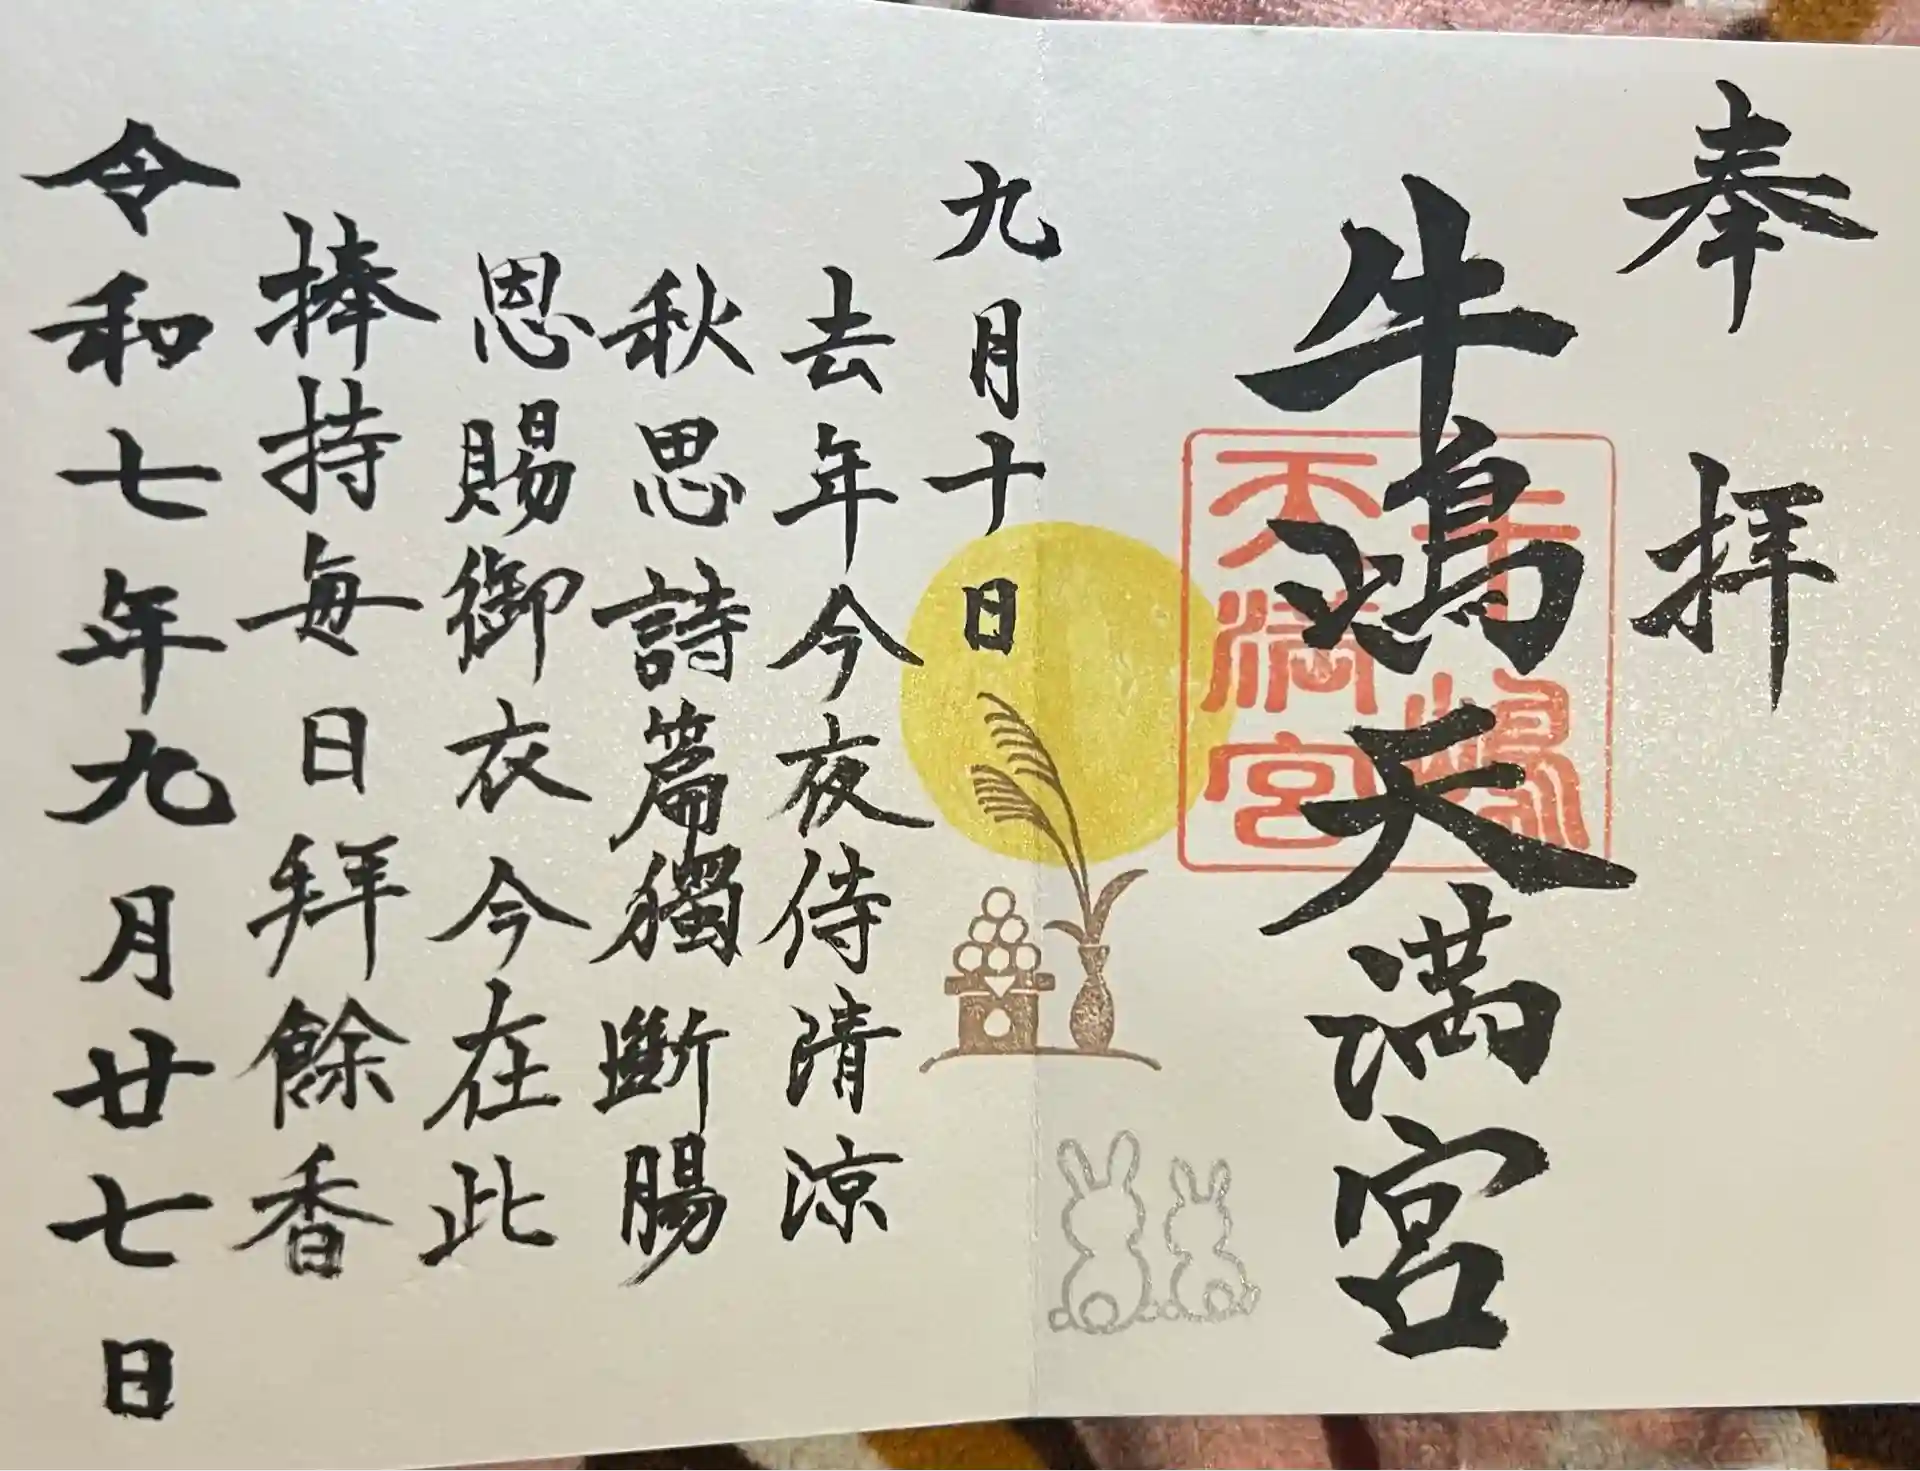 奉拝
牛嶋天満宮
牛嶋
天満宮
九月十日
去年今夜侍清涼
秋思詩篇獨斷腸
恩賜御衣今在此
捧持毎日拜餘香
令和七年九月廿七日